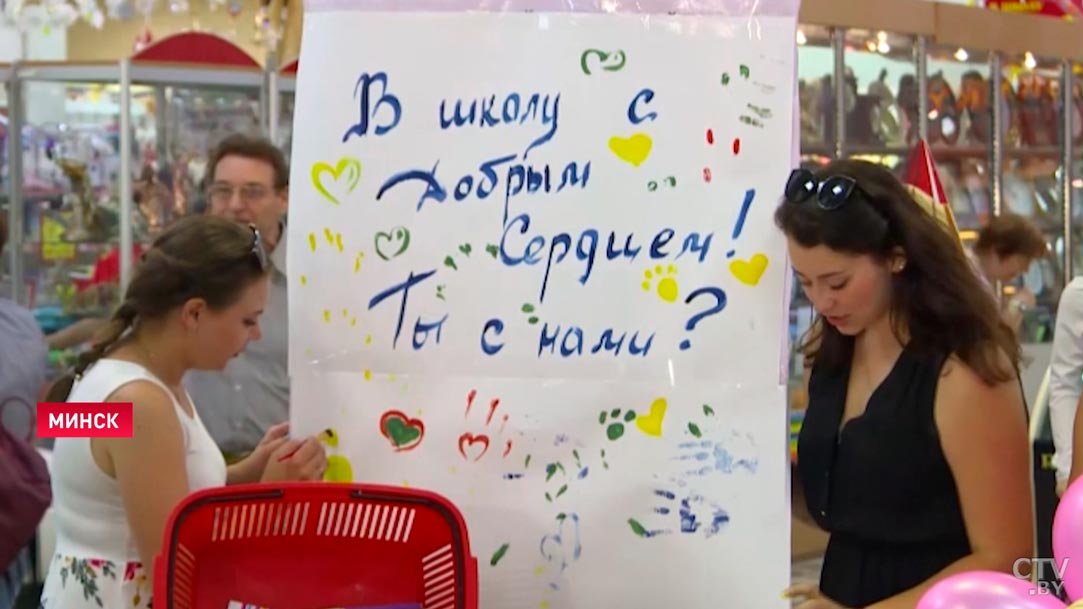 В школу с
Добрым
Сердцем!
Ты с нами?
МИНСК
CTV
.BY